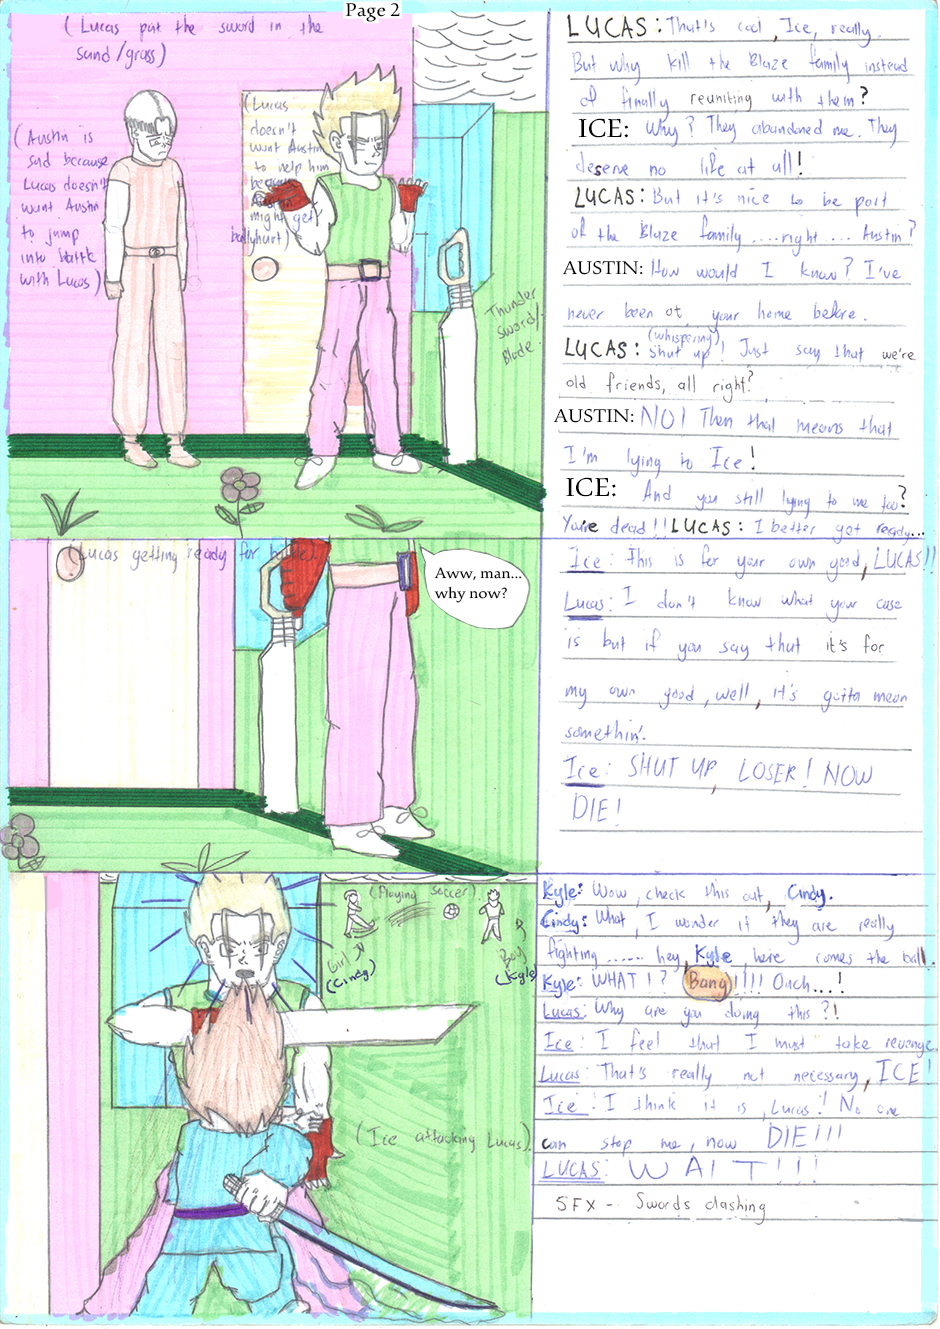 Page 2
(Lucas put the sword in the
sand/grass)
(Austin is
sad because
Lucas doesn't
want Austin
to jump
into battle
with Lucas)
(Lucas
doesn't
want Austin
to help him
because
Austin
might get
badly hurt)
Thunder
Sword/
Blade
LUCAS: That's cool, Ice, really.
But why kill the Blaze family instead
of finally reuniting with them?
ICE: Why? They abandoned me. They
deserve no life at all!
LUCAS: But it's nice to be part
of the Blaze family ....right .... Austin?
AUSTIN: How would I know? I've
never been at your home before.
(whispering)
LUCAS: shut up! Just say that we're
old friends, all right?
AUSTIN: NO! Then that means that
I'm lying to Ice!
ICE: And you still lying to me too?
You're dead!! LUCAS: I better get ready...
(Lucas getting ready for
Aww, man...
why now?
Ice: This is for your own good, LUCAS!!
Lucas: I don't know what your case
is but if you say that it's for
my own good, well, it's gotta mean
somethin'.
Ice: SHUT UP, LOSER! NOW
DIE!
(Playing soccer)
Girl
(Cindy)
Boy
(Kyle)
(Ice attacking Lucas).
Kyle: Wow, check this out, Cindy.
Cindy: What, I wonder if they are really
fighting ...... hey, Kyle, here comes the ball.
Kyle: WHAT!? Bang!!!! Ouch...!
Lucas: Why are you doing this?!
Ice: I feel that I must take revenge.
Lucas: That's really not necessary, ICE!
Ice: I think it is, Lucas! No one
can stop me, now DIE!!!
LUCAS: WAIT!!!
SFX - Swords clashing